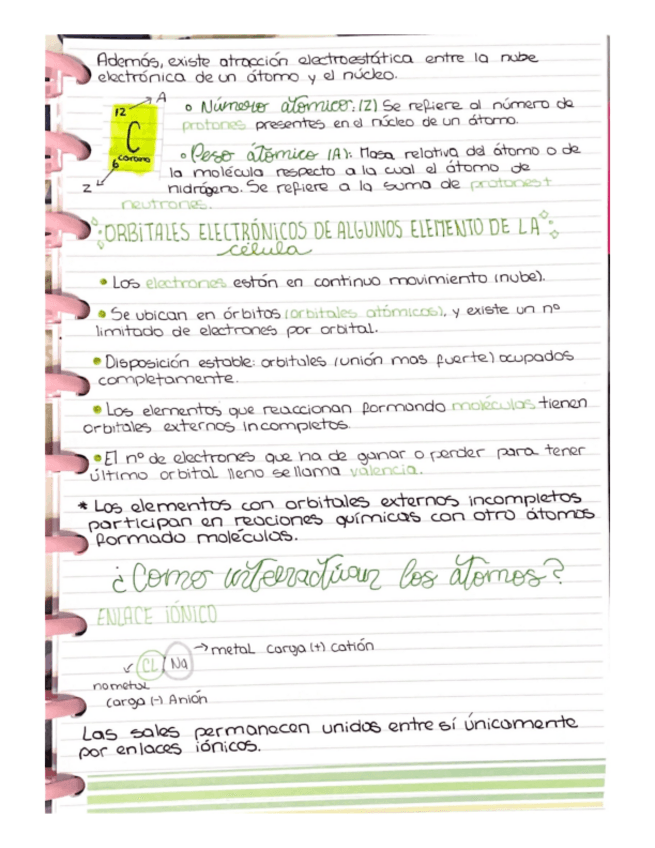 Además, existe atracción electroestática entre la nube
electrónica de un átomo y el núcleo.
A
12
C
carbono
6
Z
Número atomico: (Z) Se refiere al número de
protones presentes en el núcleo de un átomo.
Peso átómico (A): Masa relativa del átomo o de
la molécula respecto a la cual el átomo de
hidrógeno. Se refiere a la suma de protones +
neutrones.
ORBITALES ELECTRÓNICOS DE ALGUNOS ELEMENTO DE LA
célula
Los electrones están en continuo movimiento (nube).
Se ubican en órbitas (orbitales atómicos), y existe un nº
limitado de electrones por orbital.
Disposición estable: orbitales (unión mas fuerte) ocupados
completamente.
Los elementos que reaccionan formando moléculas tienen
orbitales externos incompletos.
El nº de electrones que ha de ganar o perder para tener
último orbital lleno se llama valencia.
* Los elementos con orbitales externos incompletos
participan en reaciones químicas con otro átomos
formado moléculas.
¿Como interactúan los átomos?
ENLACE IÓNICO
→ metal carga (+) catión
CL / Na
no metal
carga (-) Anión
Las sales permanecen unidos entre sí únicamente
por enlaces iónicos.